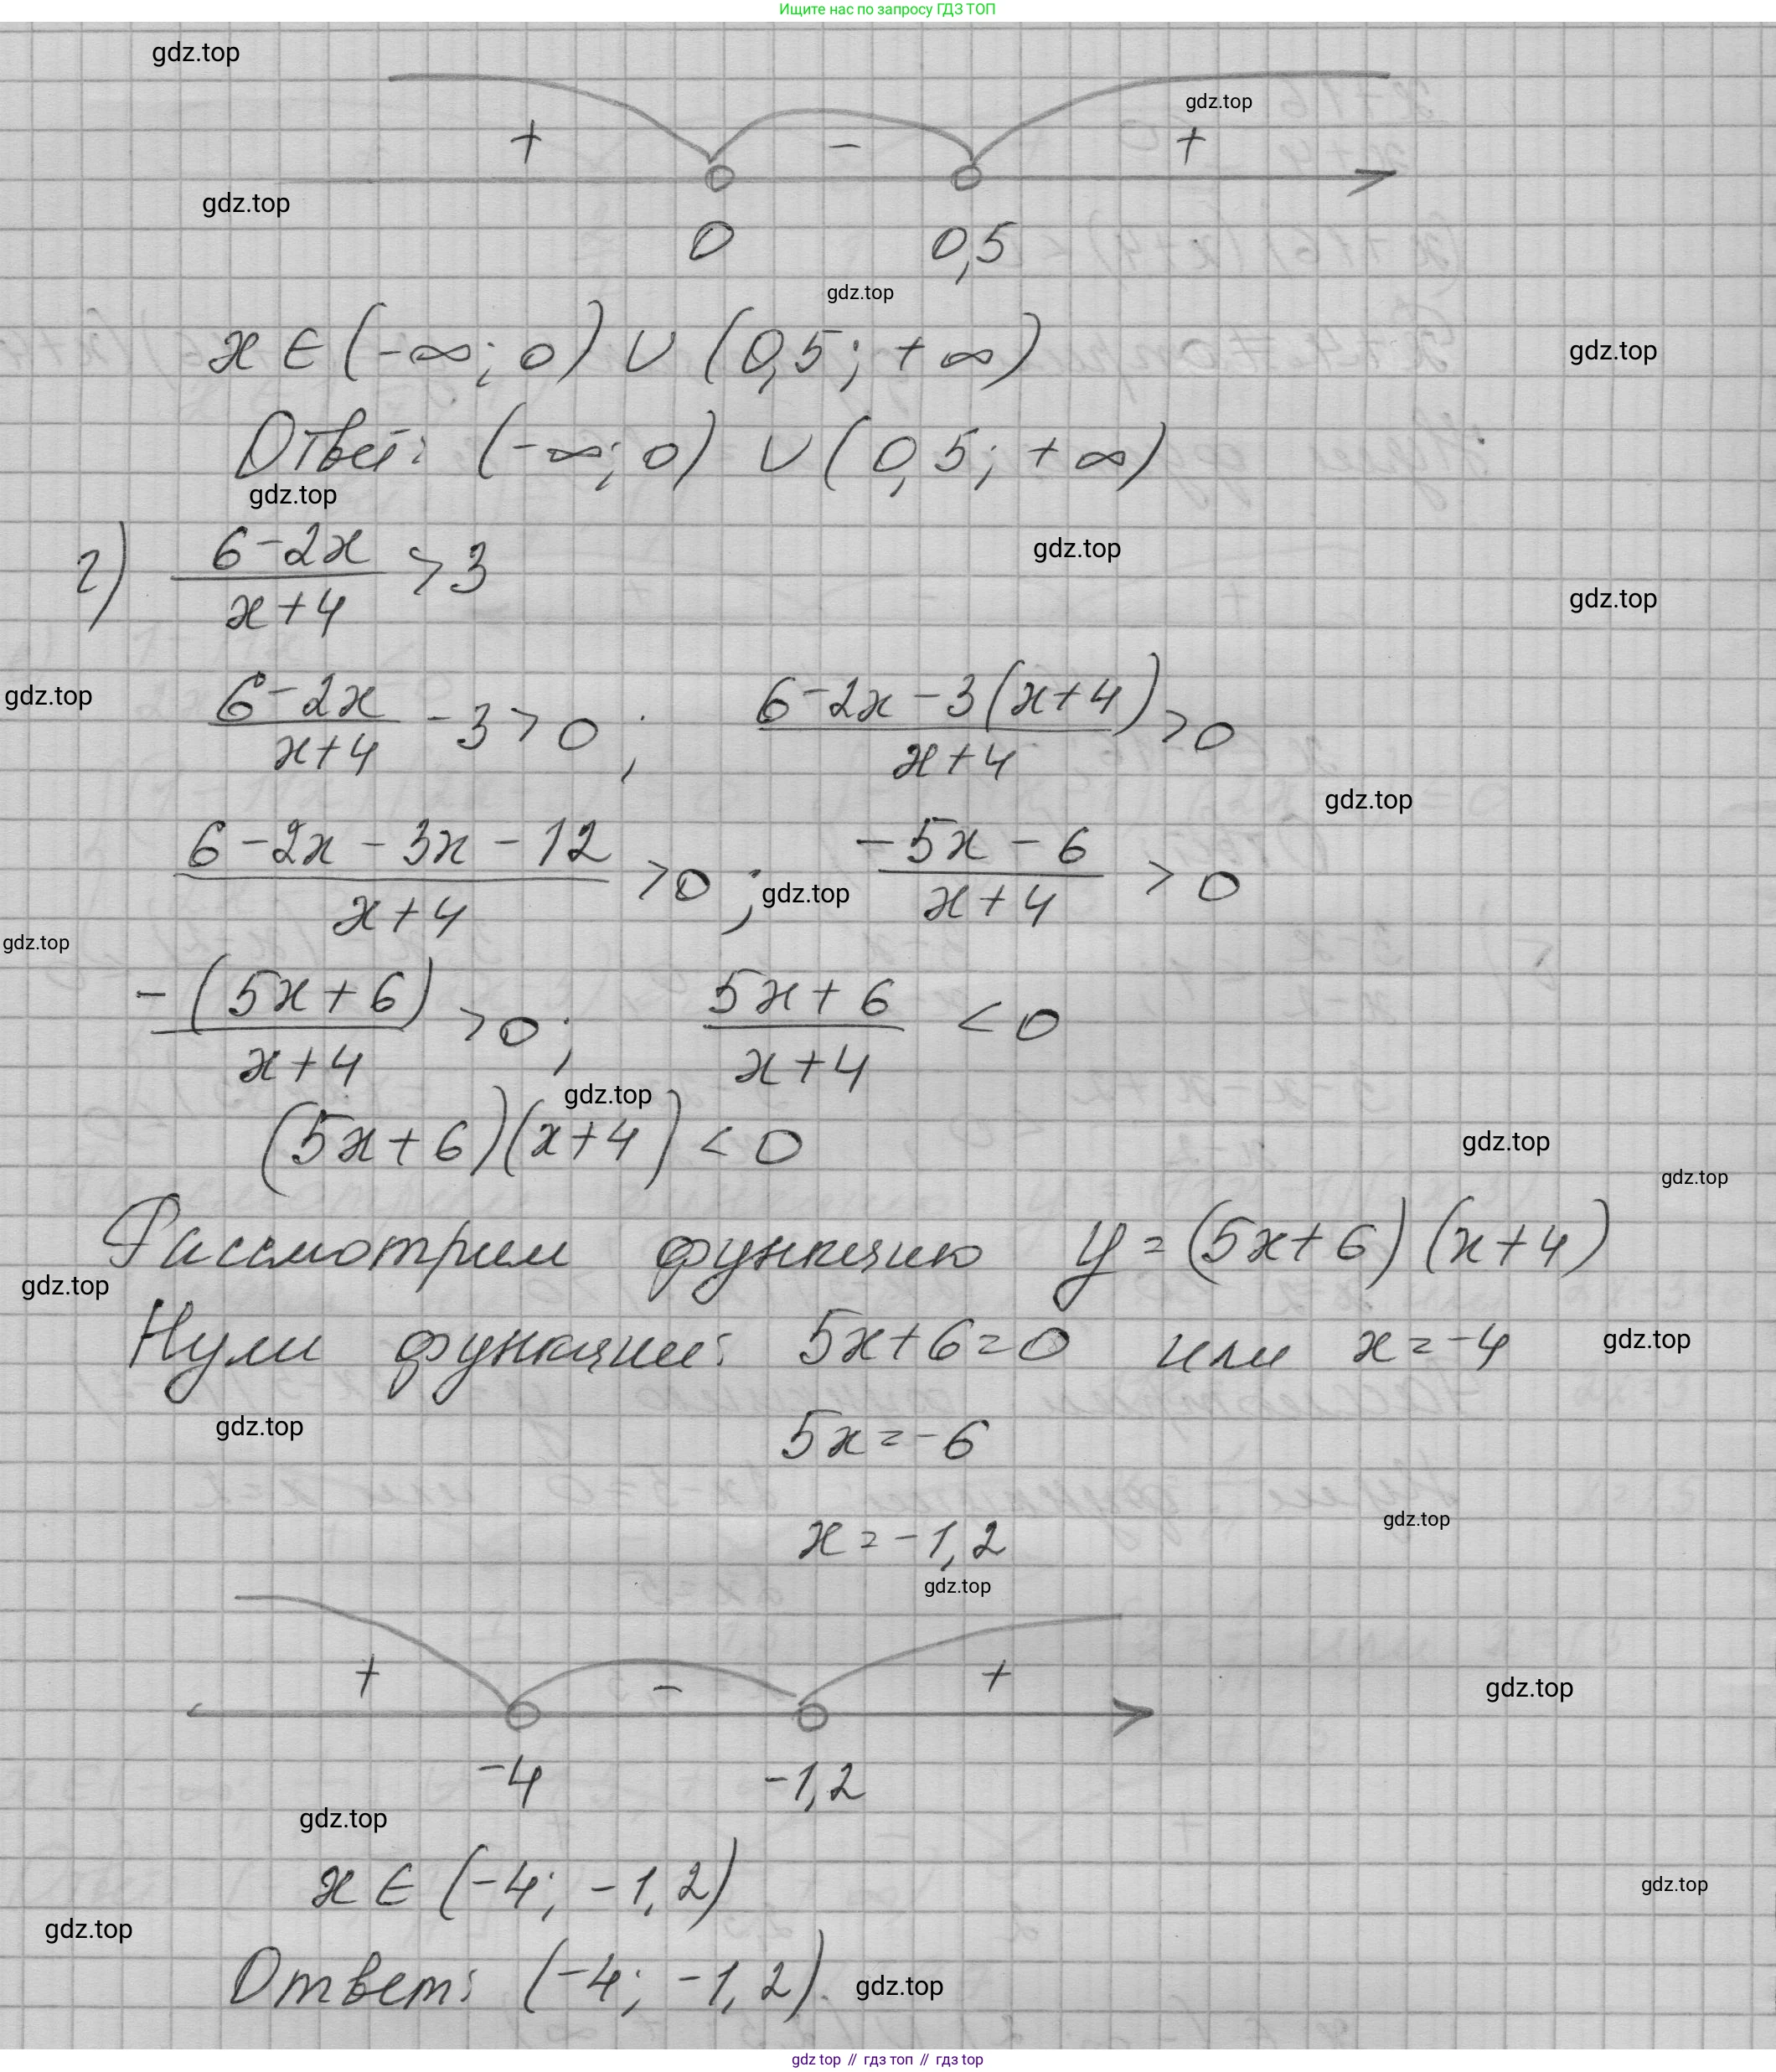 Ищите нас по запросу ГДЗ ТОП
gdz.top
gdz.top
+ - +
gdz.top
0 0,5
gdz.top
x ∈ (-∞; 0) ∪ (0,5; +∞)
gdz.top
Ответ: (-∞; 0) ∪ (0,5; +∞)
gdz.top
г) (6-2x)/(x+4) > 3
gdz.top
gdz.top
gdz.top
(6-2x)/(x+4) - 3 > 0; (6-2x-3(x+4))/(x+4) > 0
gdz.top
(6-2x-3x-12)/(x+4) > 0; (-5x-6)/(x+4) > 0
gdz.top
gdz.top
(-(5x+6))/(x+4) > 0; (5x+6)/(x+4) < 0
gdz.top
(5x+6)(x+4) < 0
gdz.top
gdz.top
Рассмотрим функцию y=(5x+6)(x+4)
gdz.top
Нули функции: 5x+6=0 или x=-4
gdz.top
gdz.top
5x=-6
gdz.top
x=-1,2
gdz.top
+ - +
gdz.top
-4 -1,2
gdz.top
x ∈ (-4; -1,2)
gdz.top
gdz.top
Ответ: (-4; -1,2).
gdz.top
gdz top // гдз топ // гдз top